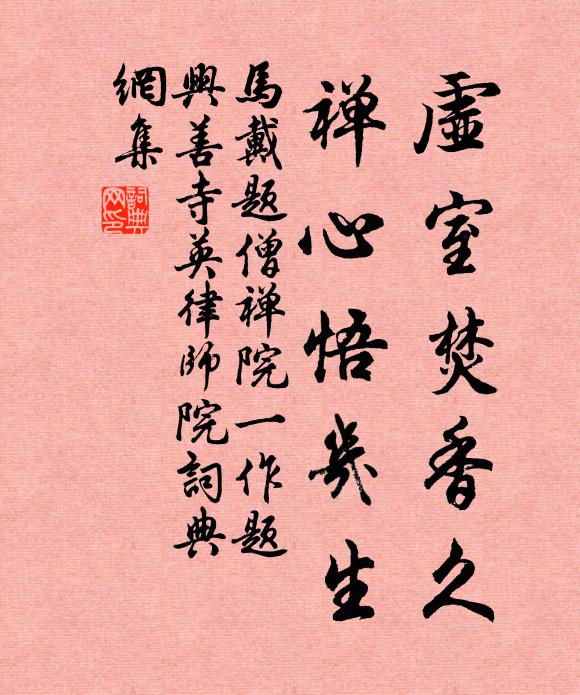 虛室焚香久
禅心悟幾生
馬戴題僧禅院一作題
興善寺英律師院詞典
網集
詞典
网印